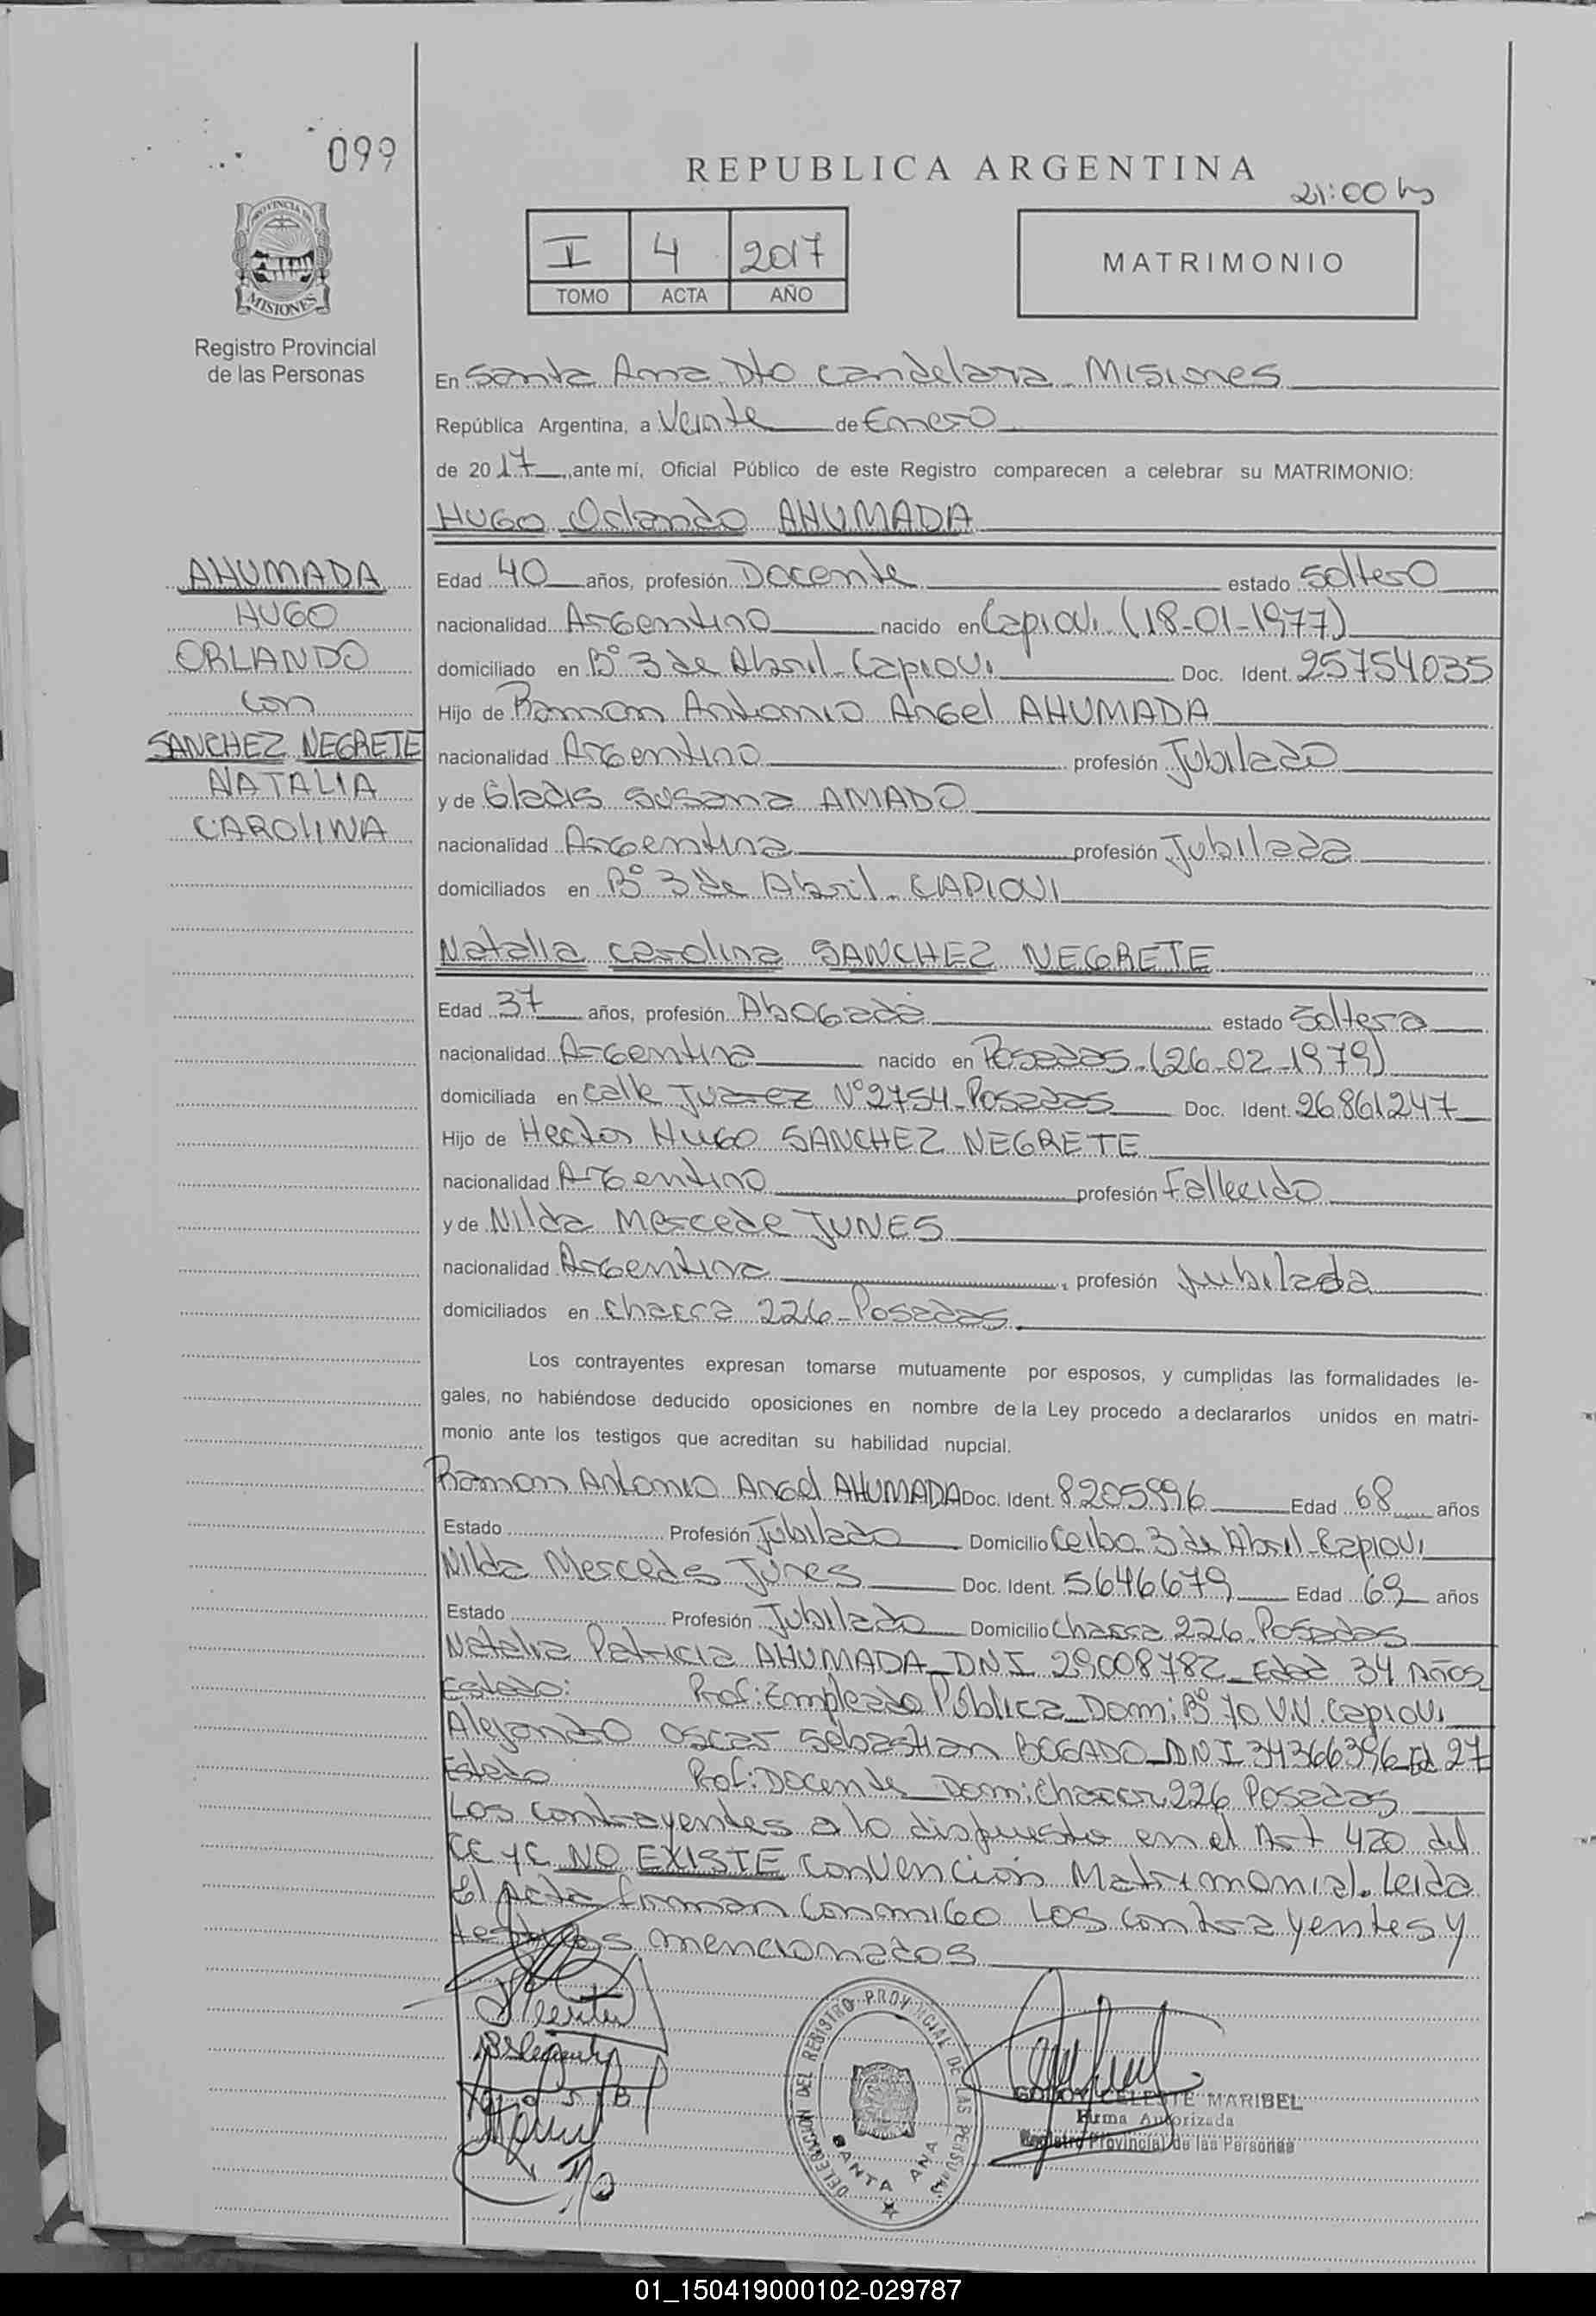 099
REPUBLICA ARGENTINA
21:00 hs
PROVINCIA DE
MISIONES
I 4 2017
TOMO ACTA AÑO
MATRIMONIO
Registro Provincial
de las Personas
En Santa Ana Dto Candelaria - Misiones
República Argentina, a Veinte de Enero
de 2017, ante mí, Oficial Público de este Registro comparecen a celebrar su MATRIMONIO:
HUGO Orlando AHUMADA
AHUMADA
HUGO
ORLANDO
con
SANCHEZ NEGRETE
NATALIA
CAROLINA
Edad 40 años, profesión Docente estado Soltero
nacionalidad Argentino nacido en Capiovi (18-01-1977)
domiciliado en B° 3 de Abril - Capiovi Doc. Ident. 25754035
Hijo de Ramon Antonio Angel AHUMADA
nacionalidad Argentino profesión Jubilado
y de Gladis Susana AMADO
nacionalidad Argentina profesión Jubilada
domiciliados en B° 3 de Abril - CAPIOVI
Natalia Carolina SANCHEZ NEGRETE
Edad 37 años, profesión Abogada estado Soltera
nacionalidad Argentina nacido en Posadas (26-02-1979)
domiciliada en calle Juarez N° 2754 - Posadas Doc. Ident. 26861247
Hijo de Hector Hugo SANCHEZ NEGRETE
nacionalidad Argentino profesión Fallecido
y de Nilda Mercede JUNES
nacionalidad Argentina, profesión Jubilada
domiciliados en Chacra 226 - Posadas
Los contrayentes expresan tomarse mutuamente por esposos, y cumplidas las formalidades le-
gales, no habiéndose deducido oposiciones en nombre de la Ley procedo a declararlos unidos en matri-
monio ante los testigos que acreditan su habilidad nupcial.
Ramon Antonio Angel AHUMADA Doc. Ident. 8205996 Edad 68 años
Estado Profesión Jubilado Domicilio Ceibo 3 de Abril - Capiovi
Nilda Mercedes Junes Doc. Ident. 5646679 Edad 69 años
Estado Profesión Jubilado Domicilio Chacra 226 Posadas
Natalia Patricia AHUMADA DNI 29008782 Edad 34 Años
Estado: Prof: Empleada Pública Domi: B° 70 V.V. Capiovi
Alejandro Oscar Sebastian BOGADO DNI 34366396 Ed 27
Estado Prof: Docente Domi: Chacra 226 Posadas
Los contrayentes a lo dispuesto en el Art 420 del
CC y C NO EXISTE Convención Matrimonial. Leida
El Acta firman conmigo los contrayentes y
testigos mencionados
DELEGACION DEL REGISTRO PROVINCIAL DE LAS PERSONAS
SANTA ANA
GODOY CELESTE MARIBEL
Firma Autorizada
Registro Provincial de las Personas
01_150419000102-029787